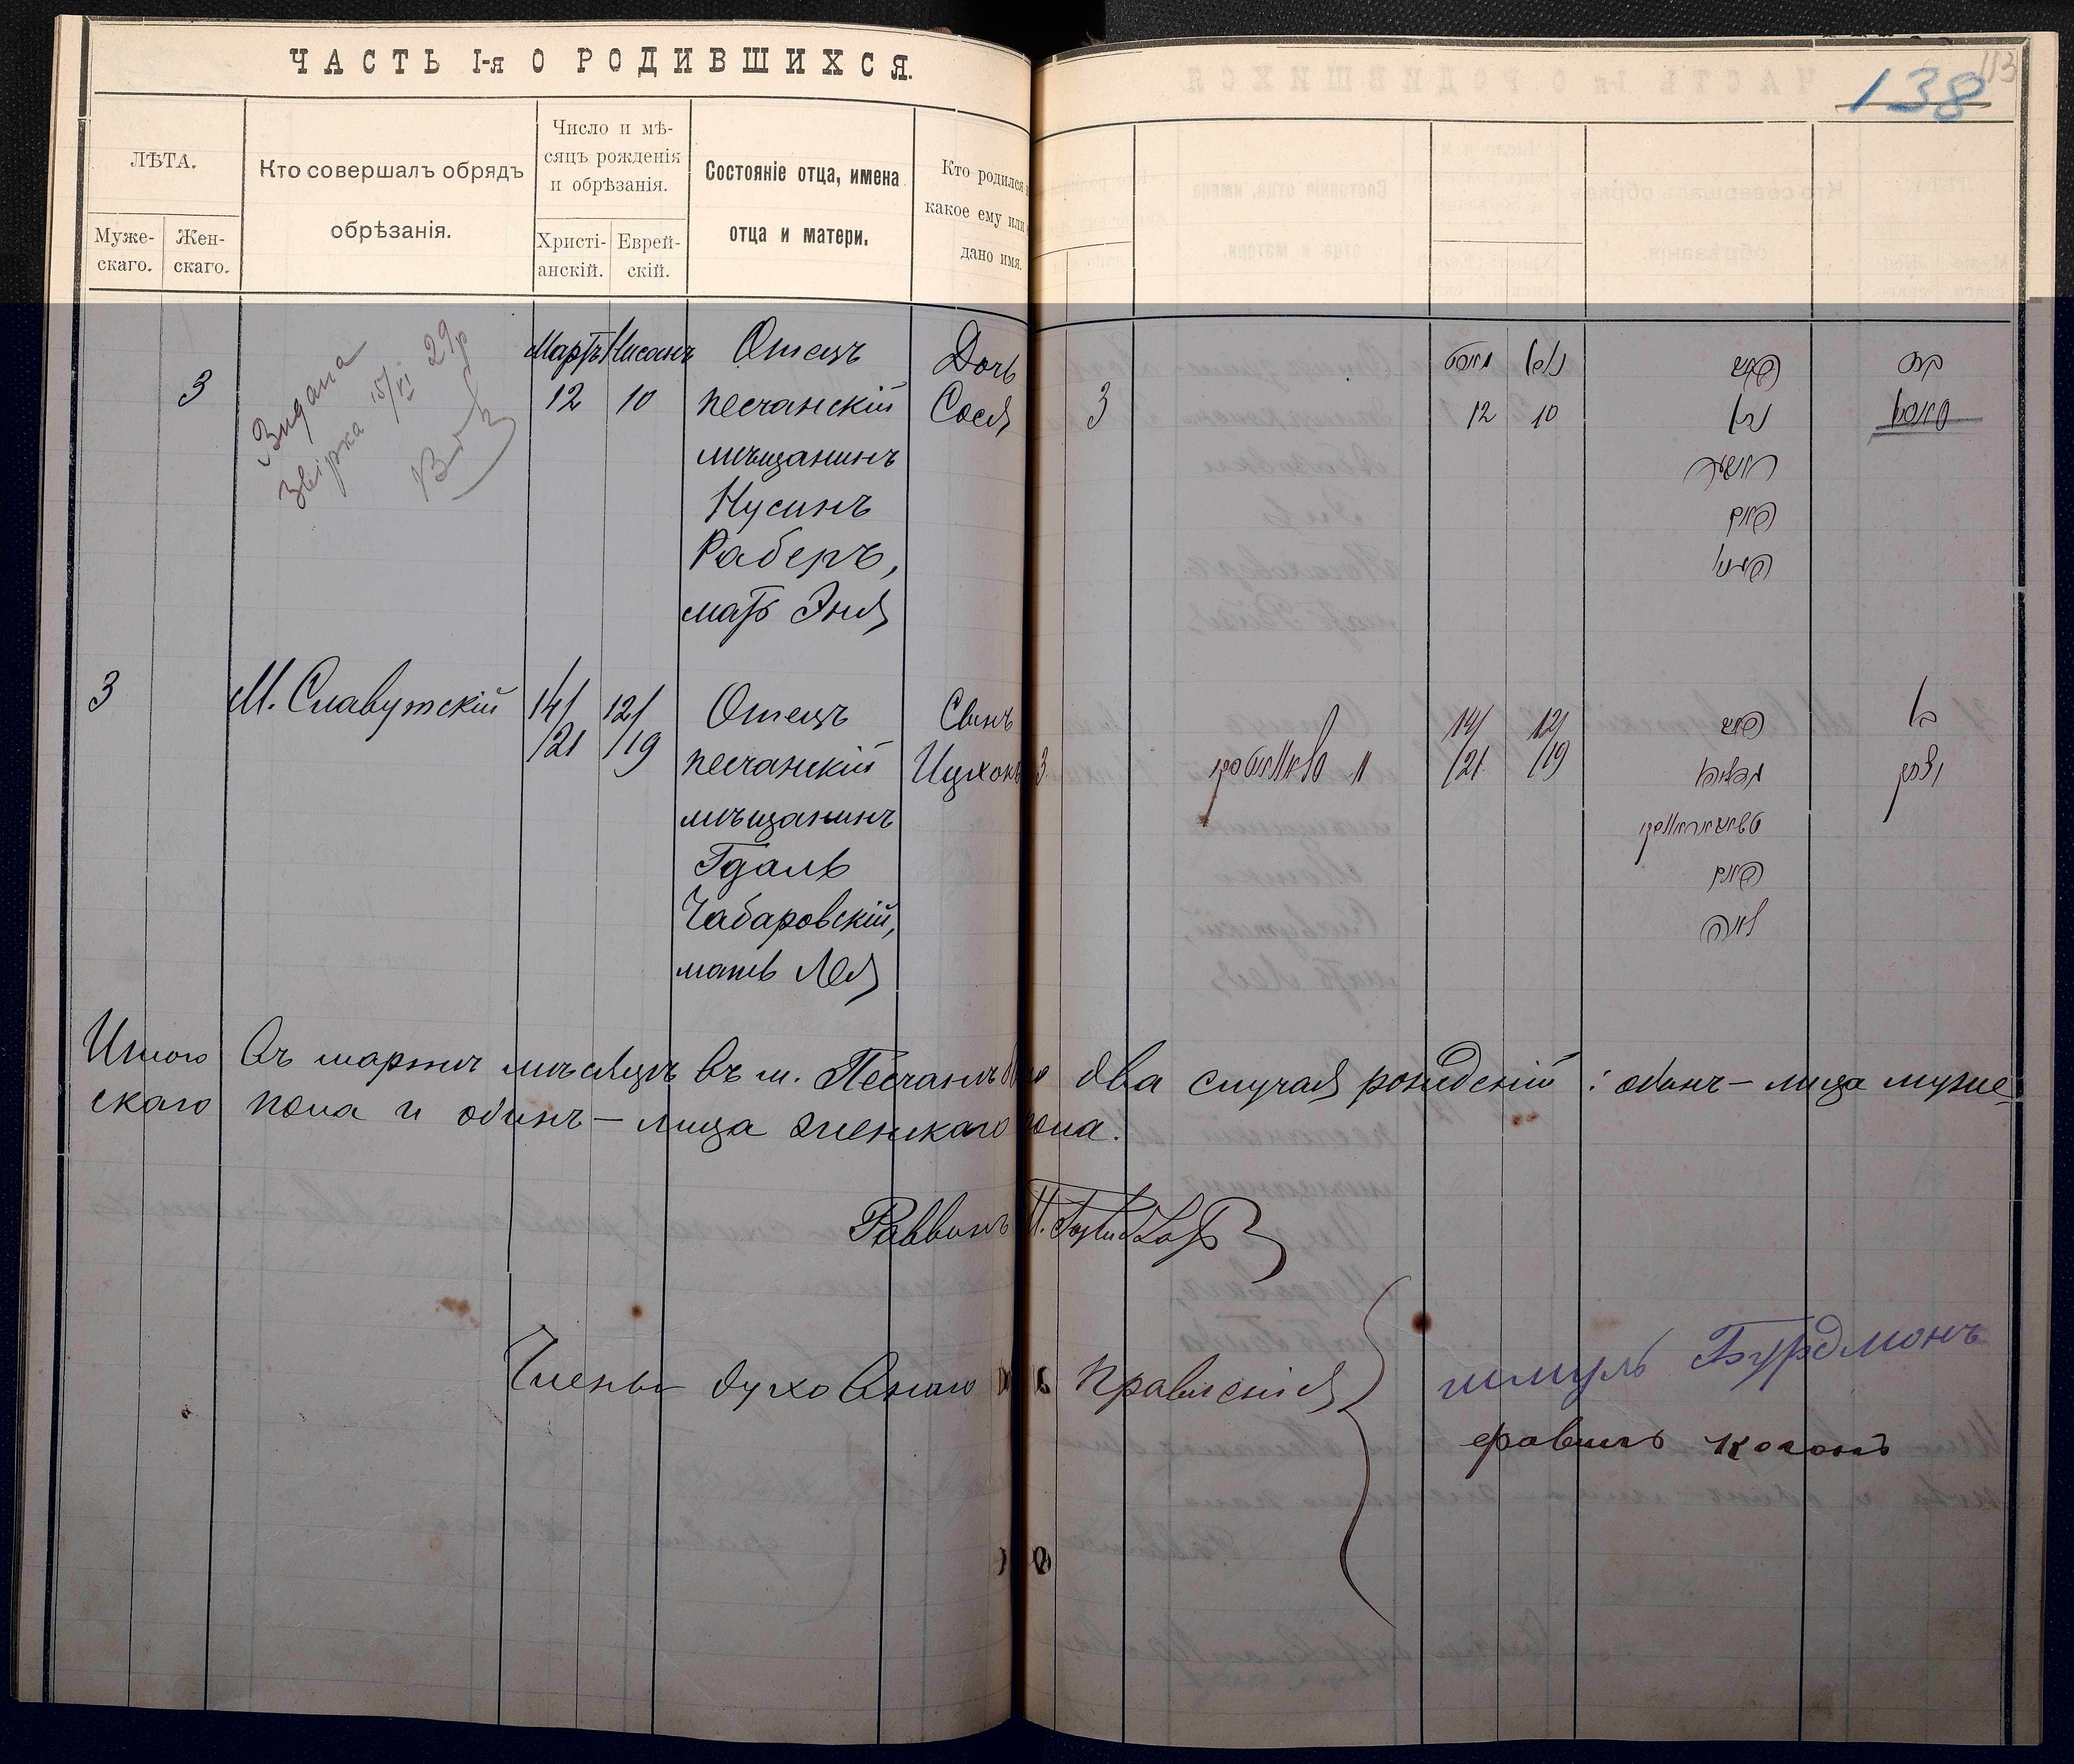 ЧАСТЬ I-я О РОДИВШИХСЯ.
138
113
ЛѢТА.
Муже-
скаго.
Жен-
скаго.
Кто совершалъ обрядъ
обрѣзанія.
Число и мѣ-
сяцъ рожденія
и обрѣзанія.
Христі-
анскій.
Еврей-
скій.
Состояніе отца, имена
отца и матери.
Кто родился
какое ему или
дано имя.
3
Видана
звірка 15/VI 29р
Мартъ Нисанъ
12 10
Отецъ
песчанскій
мѣщанинъ
Нусинъ
Раберъ,
мать Эня
Дочь
Сося
3
12 10
3
М. Славутскій
14/
/21
12/
/19
Отецъ
песчанскій
мѣщанинъ
Гдаль
Чабаровскій,
мать Лея
Сынъ
Ицхокъ
3
14/
/21
12/
/19
בן
יצחק
לאה
Итого въ мартѣ мѣсяцѣ въ м. Песчанѣ было два случая рожденій: одинъ – лица муже-
скаго пола и одинъ – лица женскаго пола.
Раввинъ
Члены духовнаго правленія
шмуль Бурдмонъ
фавишъ когонъ